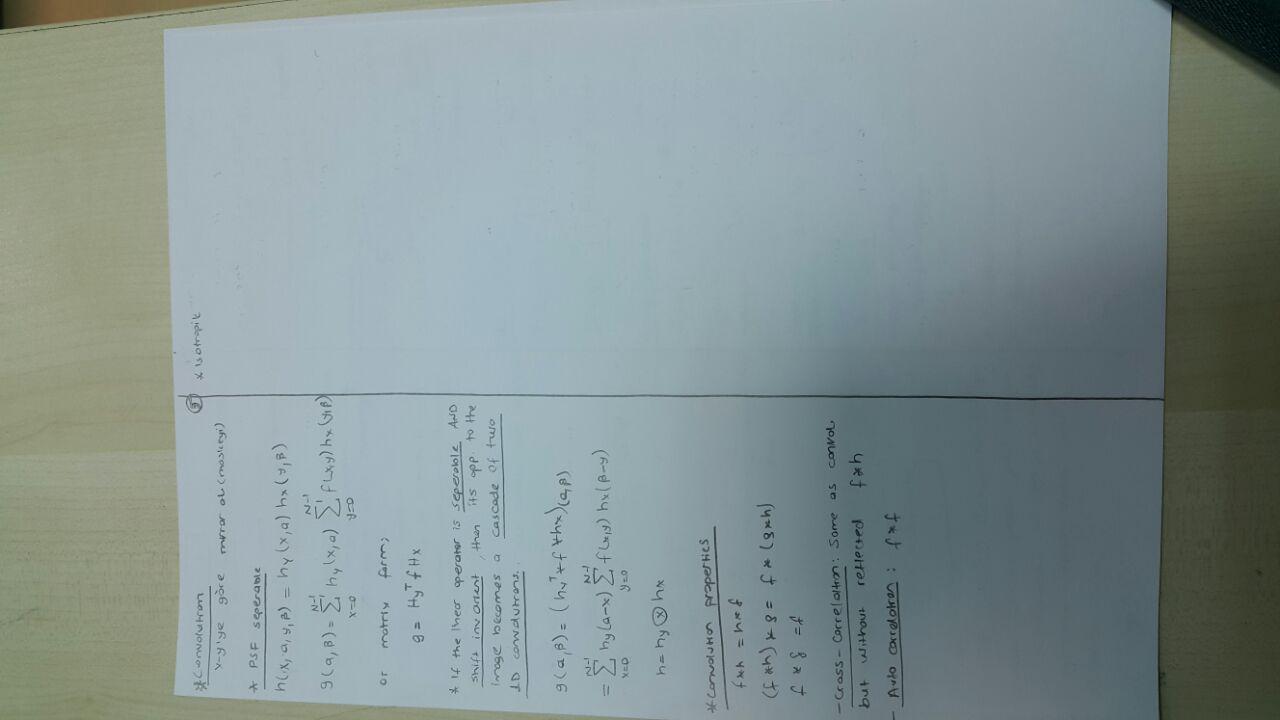 * Convolution
x-y'ye göre mirror al (maskeyi)
* PSF seperable
h(x, a, y, β) = hy(x,a) hx(y,β)
g(a, β) = Σ_{x=0}^{N-1} hy(x,a) Σ_{y=0}^{N-1} f(x,y) hx(y,β)
or matrix form;
g = Hy^T f Hx
* If the linear operator is seperable AND
shift invarient, then its opp. to the
image becomes a cascade of two
1D convolutions.
g(a, β) = (hy^T * f * hx)(a,β)
= Σ_{x=0}^{N-1} hy(a-x) Σ_{y=0}^{N-1} f(x,y) hx(β-y)
h = hy ⊗ hx
* Convolution properties
f*h = h*f
(f*h) * g = f * (g*h)
f * δ = f
- Cross-Correlation: Same as convol.
but without reflected f*h
- Auto correlation : f*f
5
* Isotropik